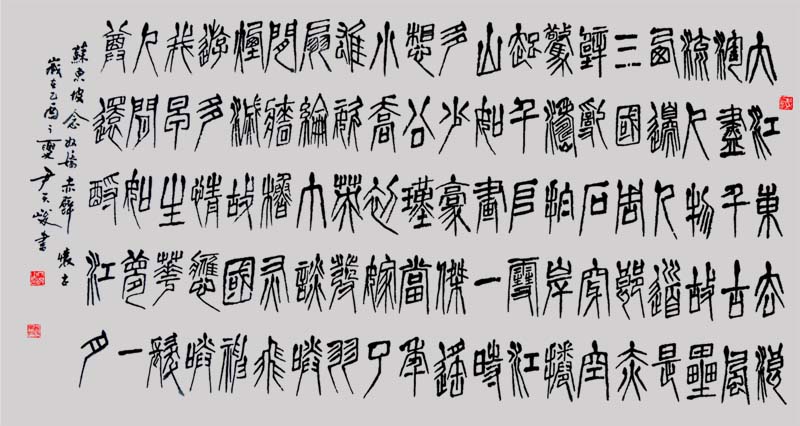 大江東去浪
淘盡千古風
流人物故壘
西邊人道是
三國周郎赤
壁亂石穿空
驚濤拍岸捲
起千堆雪江
山如畫一時
多少豪傑遙
想公瑾當年
小喬初嫁了
雄姿英發羽
扇綸巾談笑
間檣櫓灰飛
煙滅故國神
遊多情應笑
我早生華髮
人間如夢一
尊還酹江月
蘇東坡念奴嬌赤壁懷古
歲在乙酉之夏尹天書